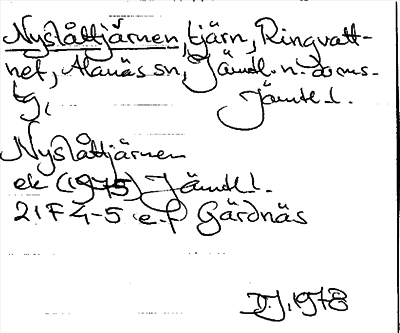 Nyslåttjärnen, tjärn, Ringvatt-
net, Alanäs sn, Jämtl. n. doms-
tg, Jämtl. l.
Nyslåttjärnen
ek (1975) Jämtl. l.
21F 4-5 e.f Gärdnäs
DJ. 1978